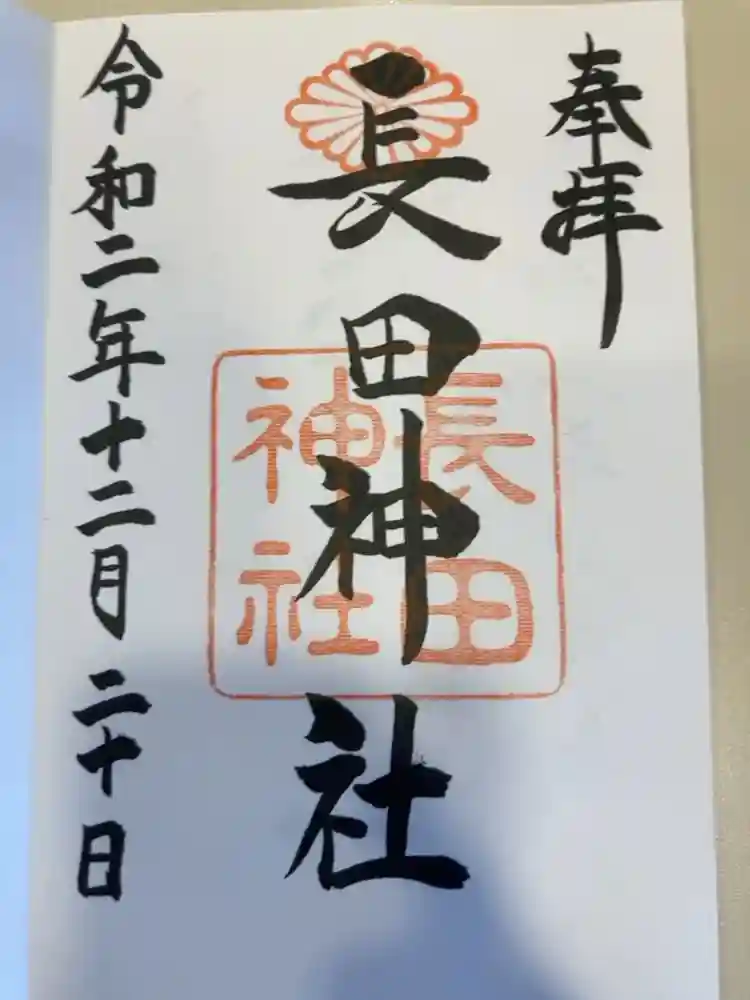 奉拝
長田神社
長田
神社
令和二年十二月二十日